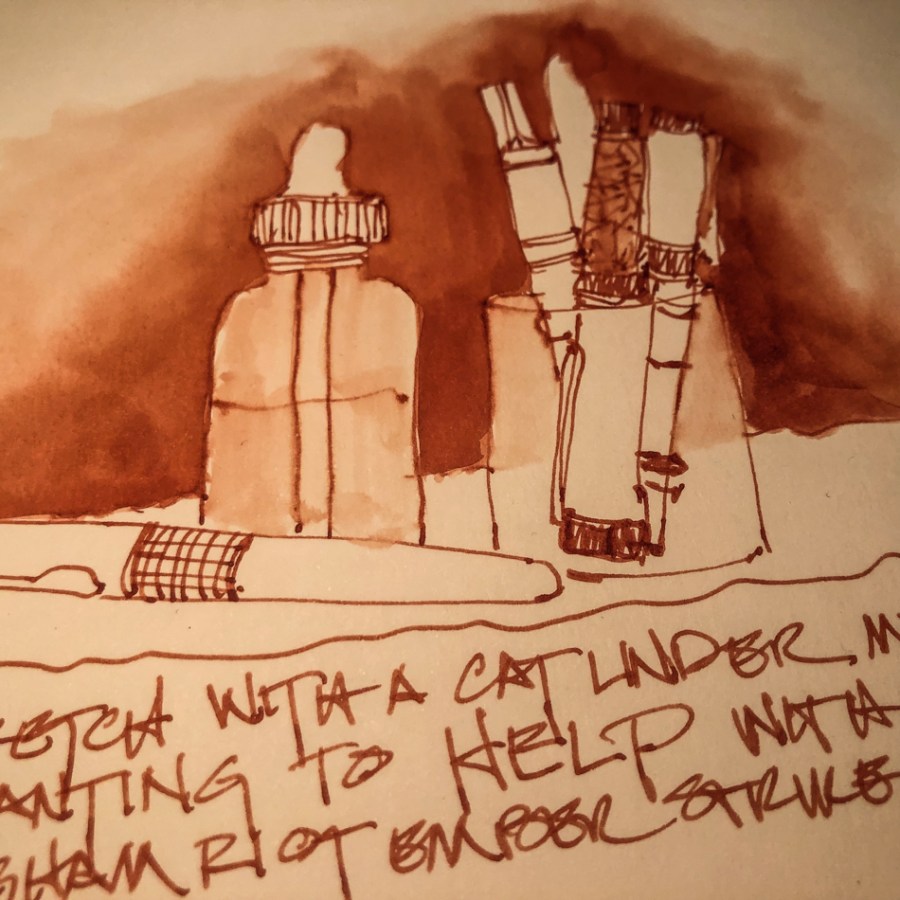 ETCH WITH A CAT UNDER M
ANTING TO HELP WITH A
HAM RIOT EMBER STRIKE